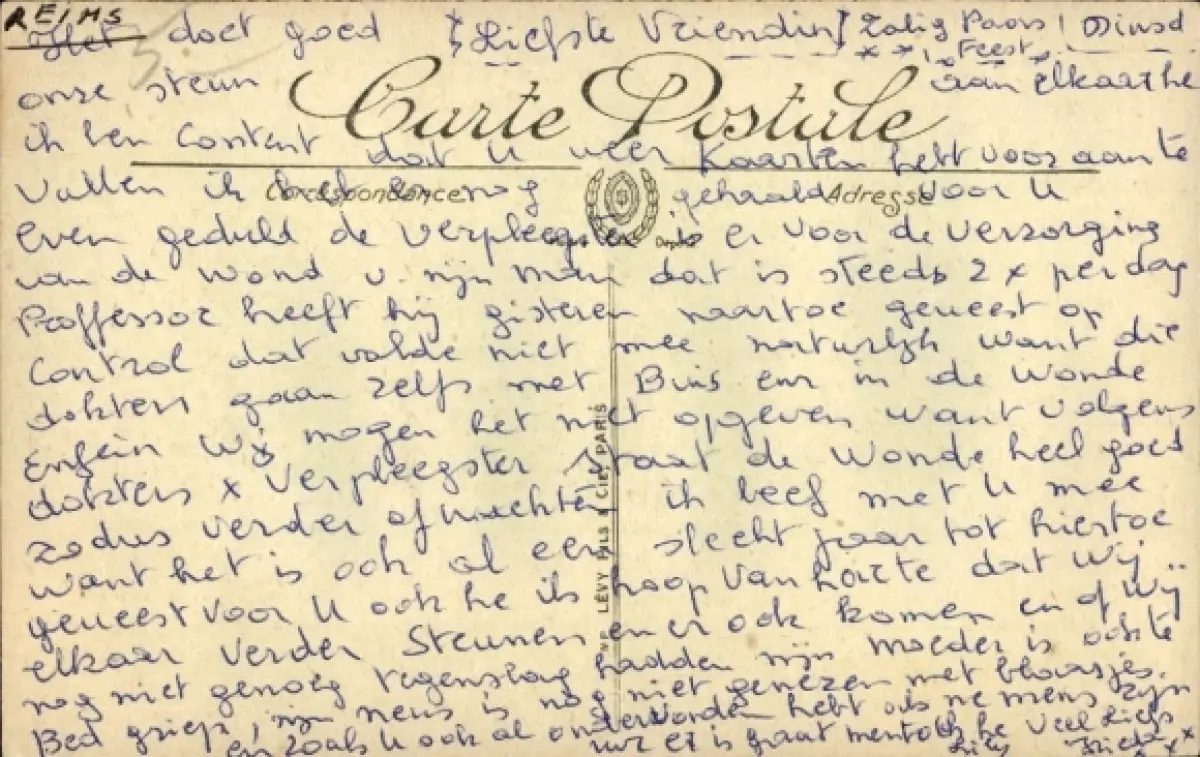 REIMS
Het doet goed Liefste Vriendin Zalig Paars Dinsd
Feest
onze steun aan elkaar he
Carte Postale
ik ben Content dat U weer Kaarten hebt voor aan te
Vullen ik heb er nog gehaald voor U
Correspondance Adresse
Even geduld de Verpleegster is er voor de Verzorging
van de Wond v. mijn man dat is steeds 2 x per dag
Proffessor heeft hij gisteren naartoe geweest op
Control dat valde niet mee natuurlijk want die
dokters gaan zelfs met Buis enz in de Wonde
Enfein Wij mogen het niet opgeven want volgens
dokters x Verpleegster staat de Wonde heel goed
LEVY FILS & Cie, PARIS
zodus verder afwachten ik leef met U mee
want het is ook al een slecht jaar tot hiertoe
geweest voor U ook he ik hoop Van harte dat Wij
elkaar verder Steunen en er ook komen en of Wij
nog niet genoeg tegenslag hadden mijn moeder is ook te
Bed griep, mijn neus is nog niet genezen met blaasjes.
en zoals U ook al ondervonden hebt als ne mens zijn
er is gaat he Veel Liefs